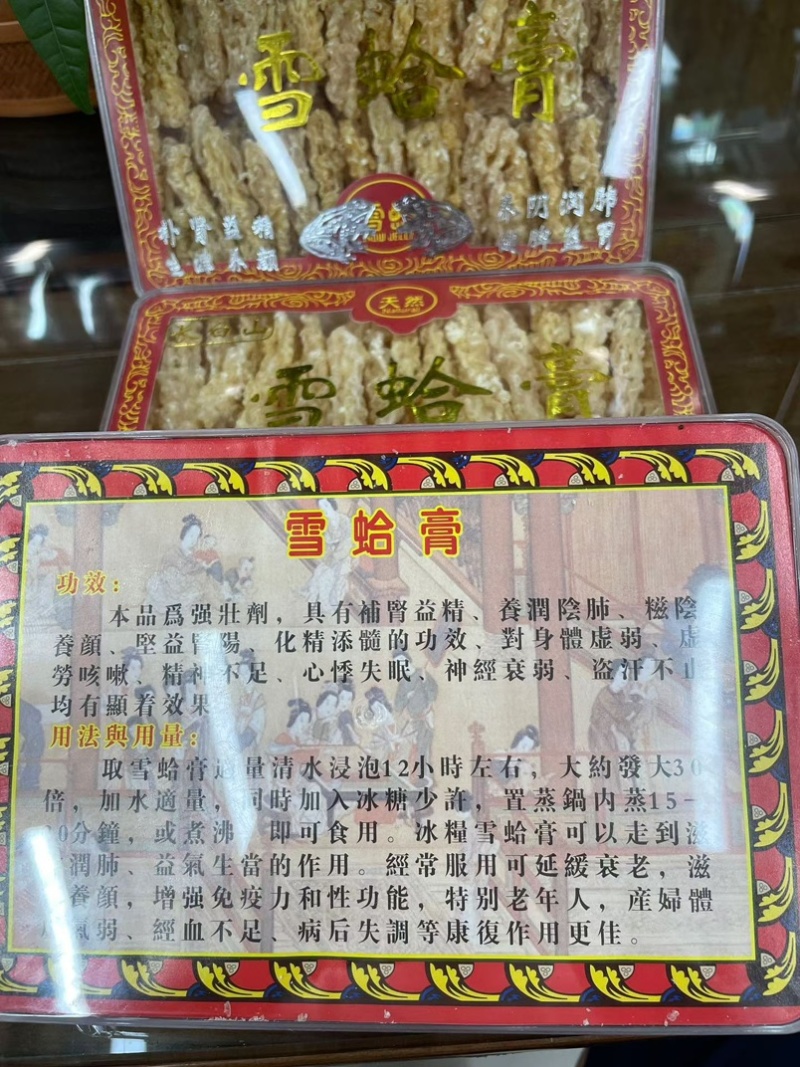 雪蛤膏
補腎益精
養陰潤肺
生津養顏
健脾益胃
天然
雪蛤膏
雪蛤膏
功效:
本品爲强壯劑，具有補腎益精、養潤陰肺、糍陰
養顔、堅益腎陽、化精添髓的功效、對身體虛弱、虛
勞咳嗽、精神不足、心悸失眠、神經衰弱、盗汗不止
均有顯着效果
用法與用量:
取雪蛤膏適量清水浸泡12小時左右，大約發大30
倍，加水適量，同時加入冰糖少許，置蒸鍋内蒸15-
0分鐘，或煮沸 即可食用。冰糧雪蛤膏可以走到滋
潤肺、益氣生當的作用。經常服用可延緩衰老，滋
養顔，增强免疫力和性功能，特别老年人，産婦體
氣弱、經血不足、病后失調等康復作用更佳。